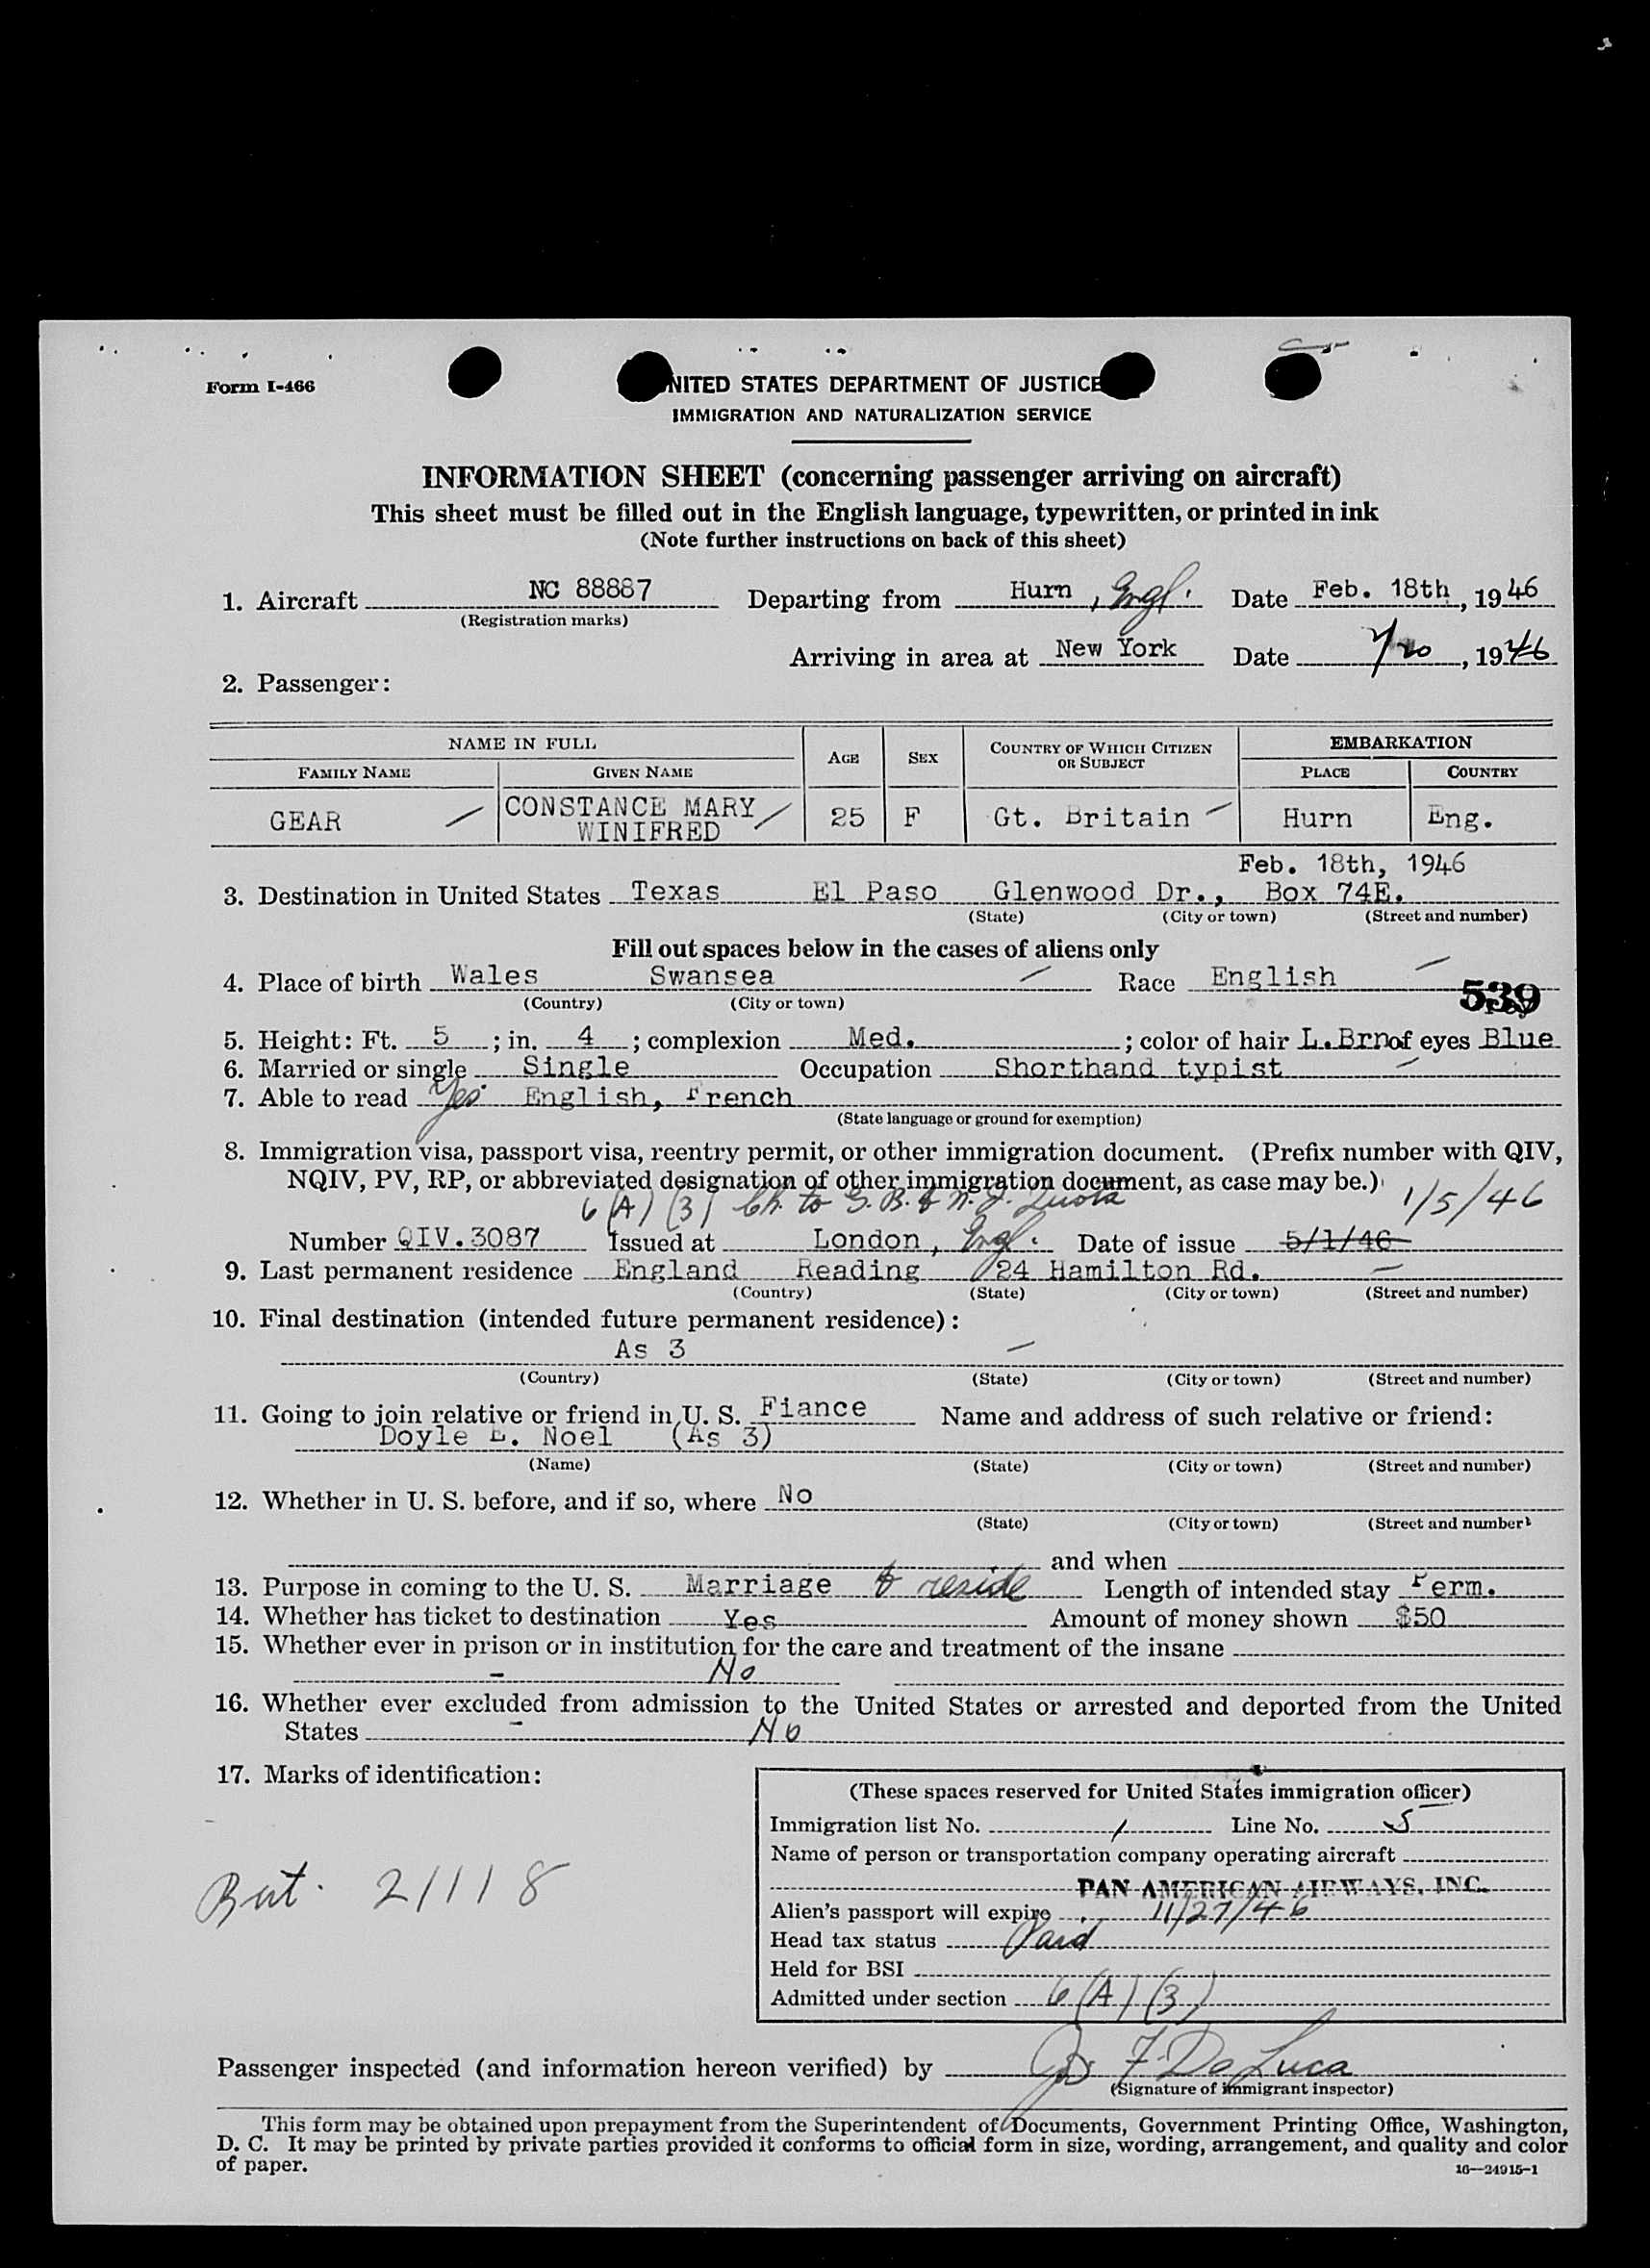 Form I-466
UNITED STATES DEPARTMENT OF JUSTICE
IMMIGRATION AND NATURALIZATION SERVICE
INFORMATION SHEET (concerning passenger arriving on aircraft)
This sheet must be filled out in the English language, typewritten, or printed in ink
(Note further instructions on back of this sheet)
1. Aircraft NC 88887 Departing from Hurn, Engl. Date Feb. 18th, 1946
(Registration marks)
Arriving in area at New York Date 1946
2. Passenger:
NAME IN FULL AGE SEX COUNTRY OF WHICH CITIZEN OR SUBJECT EMBARKATION
FAMILY NAME GIVEN NAME PLACE COUNTRY
GEAR CONSTANCE MARY WINIFRED 25 F Gt. Britain Hurn Eng.
Feb. 18th, 1946
3. Destination in United States Texas El Paso Glenwood Dr., Box 74E.
(State) (City or town) (Street and number)
Fill out spaces below in the cases of aliens only
4. Place of birth Wales Swansea Race English
(Country) (City or town)
539
5. Height: Ft. 5; in. 4; complexion Med.; color of hair L.Brn of eyes Blue
6. Married or single Single Occupation Shorthand typist
7. Able to read Yes English, French
(State language or ground for exemption)
8. Immigration visa, passport visa, reentry permit, or other immigration document. (Prefix number with QIV,
NQIV, PV, RP, or abbreviated designation of other immigration document, as case may be.)
6(A)(3) Ch. to G.B. & N.I. Quota 1/5/46
Number QIV.3087 Issued at London, Engl. Date of issue 5/1/46
9. Last permanent residence England Reading 24 Hamilton Rd.
(Country) (State) (City or town) (Street and number)
10. Final destination (intended future permanent residence):
As 3
(Country) (State) (City or town) (Street and number)
11. Going to join relative or friend in U. S. Fiance Name and address of such relative or friend:
Doyle E. Noel (As 3)
(Name) (State) (City or town) (Street and number)
12. Whether in U. S. before, and if so, where No
(State) (City or town) (Street and number)
and when
13. Purpose in coming to the U. S. Marriage & reside Length of intended stay Perm.
14. Whether has ticket to destination Yes Amount of money shown $50
15. Whether ever in prison or in institution for the care and treatment of the insane
- No
16. Whether ever excluded from admission to the United States or arrested and deported from the United
States - No
17. Marks of identification:
(These spaces reserved for United States immigration officer)
Immigration list No. 1 Line No. 5
Name of person or transportation company operating aircraft
PAN AMERICAN AIRWAYS, INC.
Brit. 21118
Alien's passport will expire 11/27/46
Head tax status Paid
Held for BSI
Admitted under section 6(A)(3)
Passenger inspected (and information hereon verified) by F. De Luca
(Signature of immigrant inspector)
This form may be obtained upon prepayment from the Superintendent of Documents, Government Printing Office, Washington,
D. C. It may be printed by private parties provided it conforms to official form in size, wording, arrangement, and quality and color
of paper.
16—24915-1